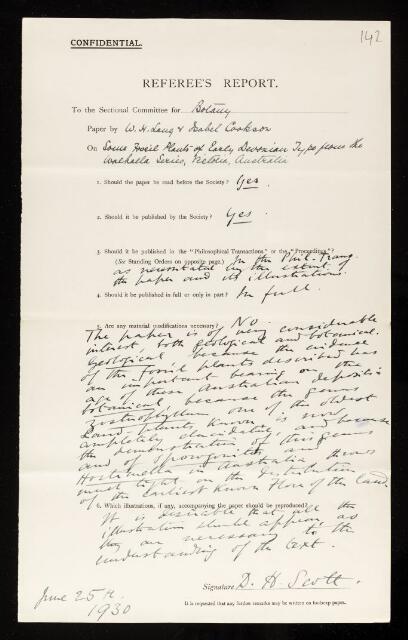 142
CONFIDENTIAL.
REFEREE'S REPORT.
To the Sectional Committee for Botany
Paper by W. H. Lang & Isabel Cookson
On Some Fossil Plants of Early Devonian Type from the
Walhalla Series, Victoria, Australia
1. Should the paper be read before the Society? Yes.
2. Should it be published by the Society? Yes.
3. Should it be published in the "Philosophical Transactions" or the "Proceedings"?
(See Standing Orders on opposite page.) In the Phil. Trans.
as necessitated by the extent of
the paper and its illustrations.
4. Should it be published in full or only in part? In full.
5. Are any material modifications necessary? No.
The paper is of very considerable
interest both geological and botanical.
Geological because the evidence
of the fossil plants described has
an important bearing on the
age of these Australian deposits
botanical because the genus
Zosterophyllum one of the oldest
Land-plants known is now
completely elucidated, and because
the demonstration of this genus
and of Sporogonites and
Hostimella in Australia throws
much light on the distribution
of the earliest known Flora of the Land.
6. Which illustrations, if any, accompanying the paper should be reproduced?
It is desirable that all the
illustrations should appear, as
they are necessary to the
understanding of the text.
Signature D. H. Scott.
June 25th.
1930
It is requested that any further remarks may be written on foolscap paper.